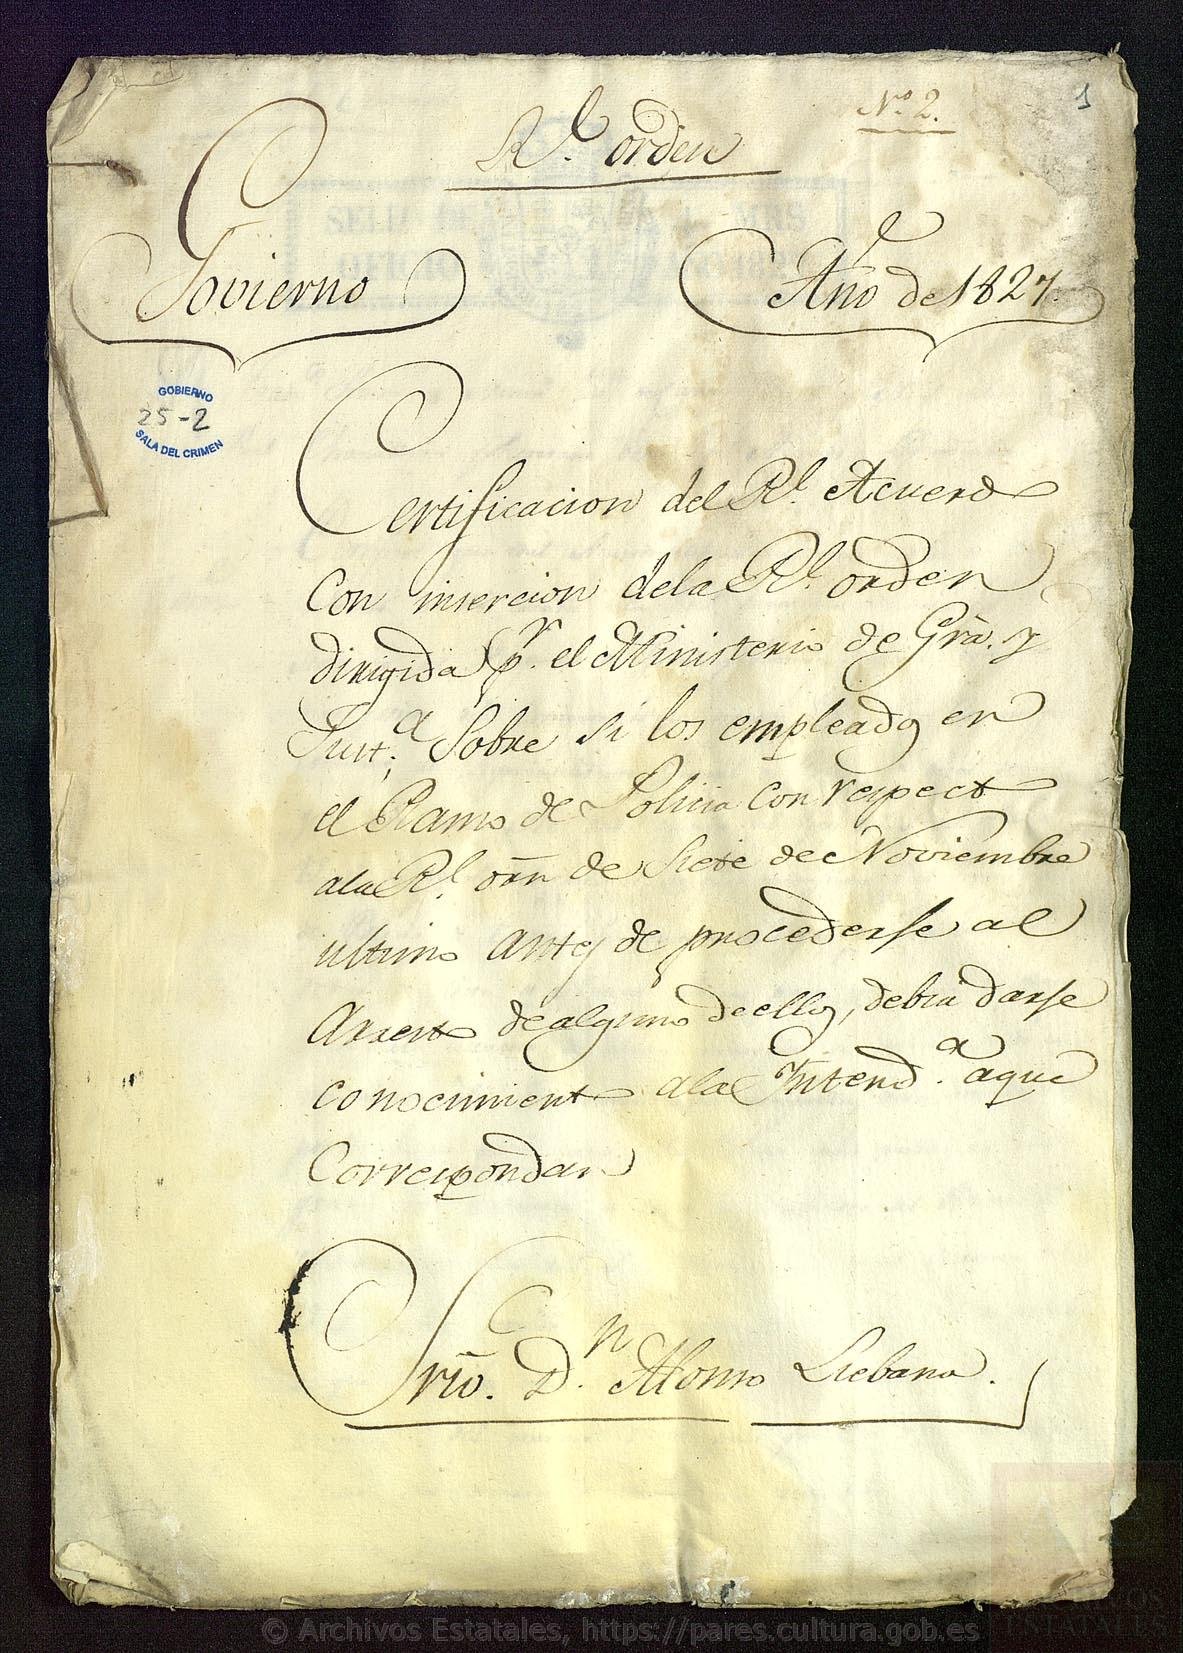 Nº 2.
1
Rl. orden
Govierno
Año de 1827.
GOBIERNO
25-2
SALA DEL CRIMEN
Certificacion del Rl. Acuerdo
Con insercion dela Rl. orden
dirigida pr. el Ministerio de Grã. y
Just.a Sobre si los empleados en
el Ramo de Policia con respecto
ala Rl. orñ de Siete de Noviembre
ultimo antes de procederse al
Arresto de alguno de ellos, debia darse
conocimiento ala Intend.a aque
Correspondan
Srio. Dn. Alonso Liebana.
© Archivos Estatales, https://pares.cultura.gob.es
ARCHIVOS
ESTATALES